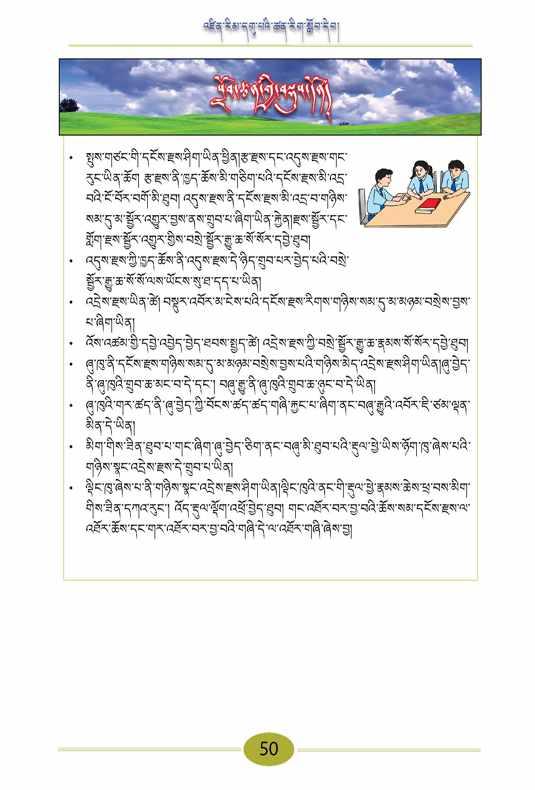 འཛིན་རིམ་དགུ་པའི་ཚན་རིག་སློབ་དེབ།
སློབ་ཚན་གྱི་བསྡུས་དོན།
• སྤུས་གཙང་གི་དངོས་རྫས་ཤིག་ཡིན་ཕྱིན།རྩ་རྫས་དང་འདུས་རྫས་གང་
རུང་ཡིན་ཆོག། རྩ་རྫས་ནི་ཁྱད་ཆོས་མི་གཅིག་པའི་དངོས་རྫས་མི་འདྲ་
བའི་ངོ་བོར་བགོ་མི་ཐུབ། འདུས་རྫས་ནི་དངོས་རྫས་མི་འདྲ་བ་གཉིས་
སམ་དུ་མ་སྦྱོར་འགྱུར་བྱས་ནས་གྲུབ་པ་ཞིག་ཡིན་རྐྱེན།རྫས་སྦྱོར་དང་
གློག་རྫས་སྦྱོར་འགྱུར་གྱིས་བསྲེ་སྦྱོར་རྒྱུ་ཆ་སོ་སོར་དབྱེ་ཐུབ།
• འདུས་རྫས་ཀྱི་ཁྱད་ཆོས་ནི་འདུས་རྫས་དེ་ཉིད་གྲུབ་པར་བྱེད་པའི་བསྲེ་
སྦྱོར་རྒྱུ་ཆ་སོ་སོ་ལས་ཡོངས་སུ་ཐ་དད་པ་ཡིན།
• འདྲེས་རྫས་ཡིན་ཚེ། བསྡུར་འབོར་མ་ངེས་པའི་དངོས་རྫས་རིགས་གཉིས་སམ་དུ་མ་མཉམ་བསྲེས་བྱས་
པ་ཞིག་ཡིན།
• འོས་འཚམ་གྱི་དབྱེ་འབྱེད་བྱེད་ཐབས་སྤྱད་ཚེ། འདྲེས་རྫས་ཀྱི་བསྲེ་སྦྱོར་རྒྱུ་ཆ་རྣམས་སོ་སོར་དབྱེ་ཐུབ།
• ཞུ་ཁུ་ནི་དངོས་རྫས་གཉིས་སམ་དུ་མ་མཉམ་བསྲེས་བྱས་པའི་གཉིས་མེད་འདྲེས་རྫས་ཤིག་ཡིན།ཞུ་བྱེད་
ནི་ཞུ་ཁུའི་གྲུབ་ཆ་མང་བ་དེ་དང་། བཞུ་རྒྱུ་ནི་ཞུ་ཁུའི་གྲུབ་ཆ་ཉུང་བ་དེ་ཡིན།
• ཞུ་ཁུའི་གར་ཚད་ནི་ཞུ་བྱེད་ཀྱི་བོངས་ཚད་ཚད་གཞི་རྐྱང་པ་ཞིག་ནང་བཞུ་རྒྱུའི་འབོར་ཇི་ཙམ་ལྡན་
མིན་དེ་ཡིན།
• མིག་གིས་ཟིན་ཐུབ་པ་གང་ཞིག་ཞུ་བྱེད་ཅིག་ནང་བཞུ་མི་ཐུབ་པའི་རྡུལ་ཕྱེ་ཡིས་ཉོག་ཁུ་ཞེས་པའི་
གཉིས་སྣང་འདྲེས་རྫས་དེ་གྲུབ་པ་ཡིན།
• ལྡིང་ཁུ་ཞེས་པ་ནི་གཉིས་སྣང་འདྲེས་རྫས་ཤིག་ཡིན།ལྡིང་ཁུའི་ནང་གི་རྡུལ་ཕྱེ་རྣམས་ཆེས་ཕྲ་བས་མིག་
གིས་ཟིན་དཀའ་རུང་། འོད་རྡུལ་ལྡོག་འཕྲོ་བྱེད་ཐུབ། གང་འཐོར་བར་བྱ་བའི་ཆོས་སམ་དངོས་རྫས་ལ་
འཐོར་ཆོས་དང་གར་འཐོར་བར་བྱ་བའི་གཞི་དེ་ལ་འཐོར་གཞི་ཞེས་བྱ།
50